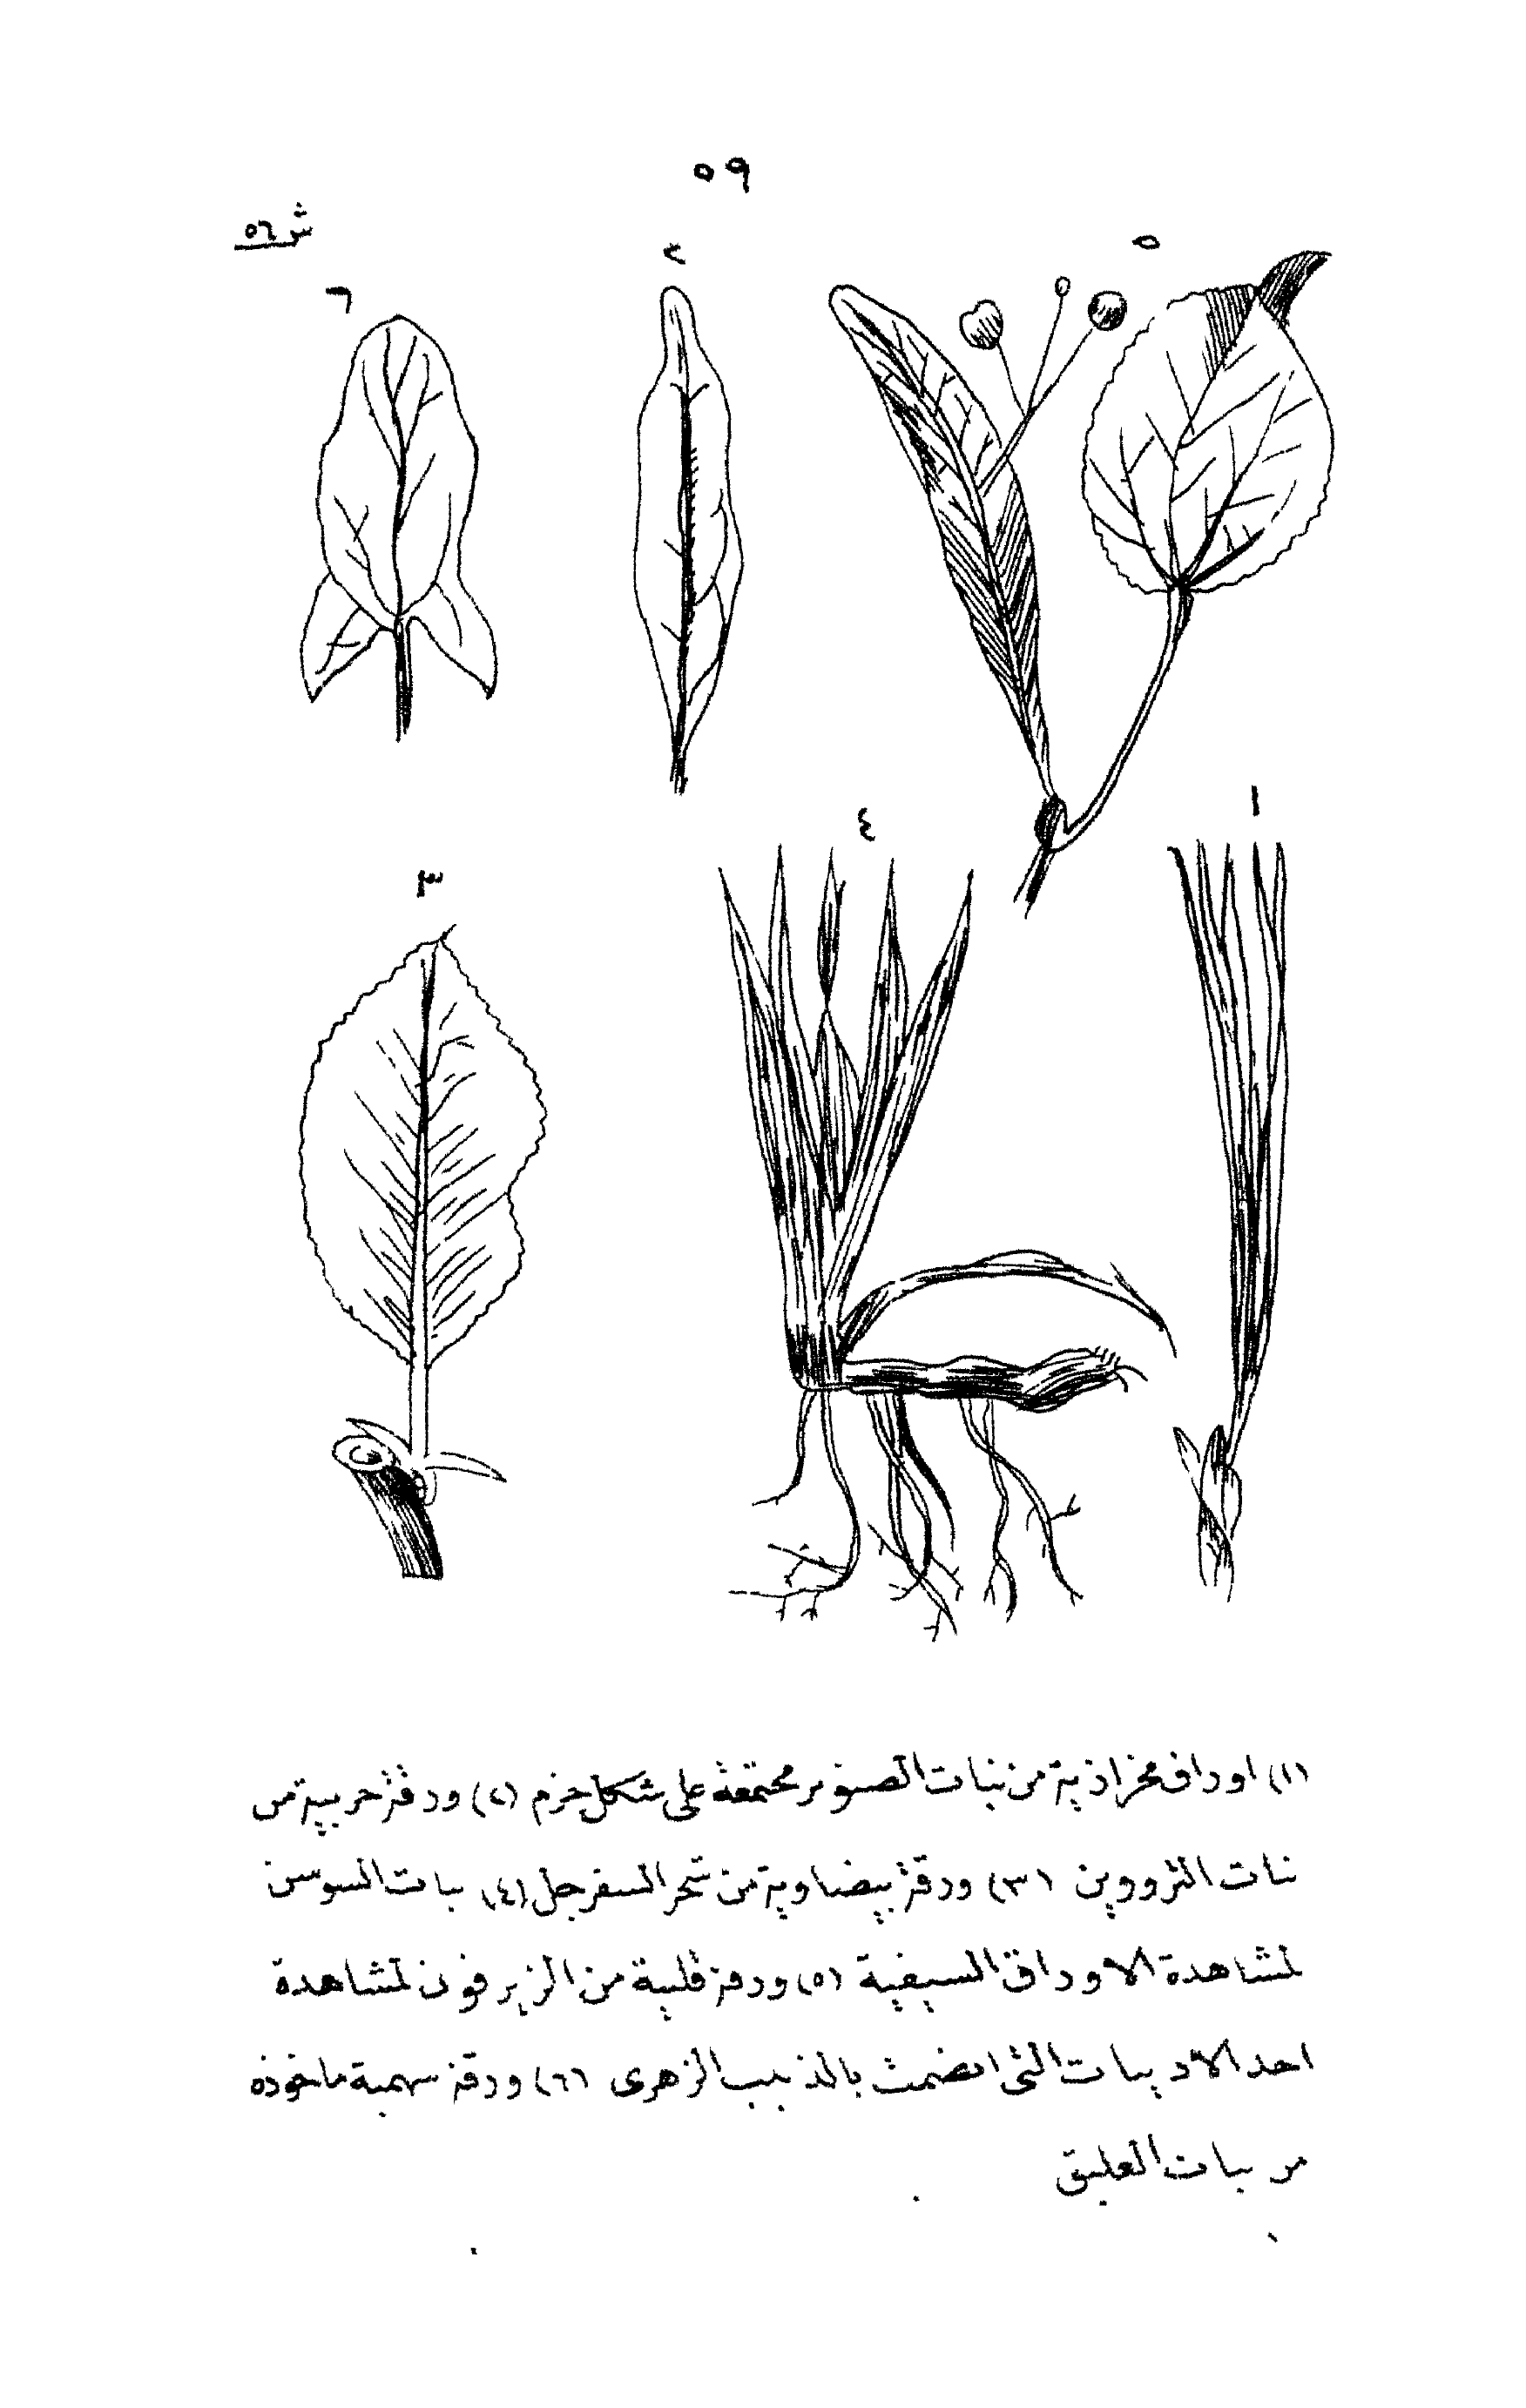 ٥٩
ش ٥٦
٦
٢
٥
٣
٤
١
(١) اوراق مخرازية من نبات الصنوبر مجتمعة على شكل حزم (٢) ورقة حربية من
نبات التروين (٣) ورقة بيضاوية من شجر السفرجل (٤) نبات السوسن
لمشاهدة الاوراق السيفية (٥) ورقة قلبية من الزيزفون لمشاهدة
احد الاذينات التى انضمت بالذنيب الزهرى (٦) ورقة سهمية ماخوذة
من نبات العليق